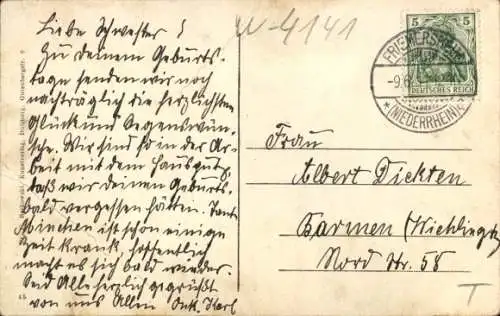 W-4141
Liebe Schwester!
Zu deinem Geburts-
tage senden wir noch
nachträglich die herzlichsten
Glück und Segenswün-
sche. Wir sind so in der Ar-
beit mit dem Hausputz,
daß wir deinen Geburts.
bald vergessen hätten. Tante
Minchen ist schon einige
Zeit krank, hoffentlich
macht es sich bald wieder.
Seid Alle herzlich gegrüßt
von uns Allen Onk. Karl
5 5
DEUTSCHES REICH
FRIEMERSHEIM
-9.6
*(NIEDERRHEIN)*
Frau
Albert Dickten
Barmen (Wichlingh.)
Nord Str. 58
T